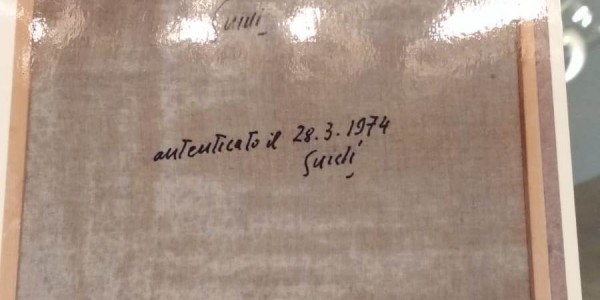 Guidi
autenticato il 28.3.1974
Guidi